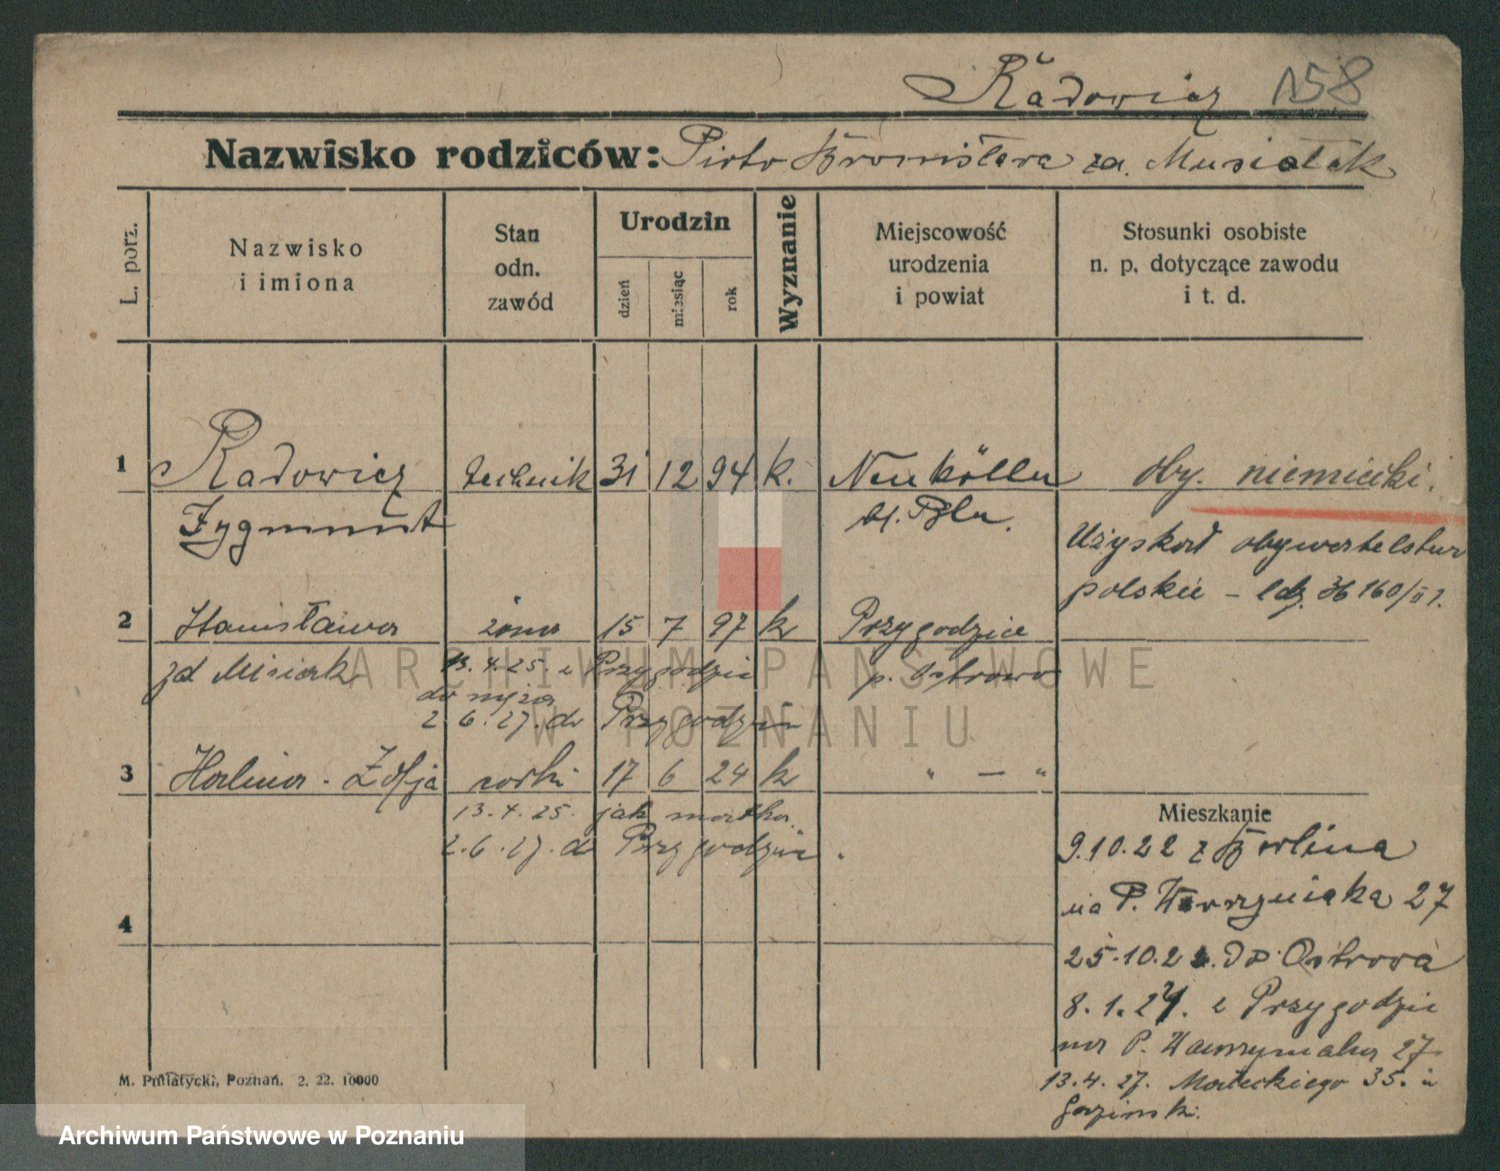 Radowicz 158
Nazwisko rodziców: Piotr Bronisława za. Musialak
L. porz.
Nazwisko
i imiona
Stan
odn.
zawód
Urodzin
dzień
miesiąc
rok
Wyznanie
Miejscowość
urodzenia
i powiat
Stosunki osobiste
n. p. dotyczące zawodu
i t. d.
1 Radowicz technik 31 12 94 k. Neukölln oby. niemiecki.
Zygmunt bl. Bln.
Uzyskał obywatelstwo
polskie –
2 Stanisława żona 15 7 97 k Przygodzice
zd Misiak 13.4.25. z Przygodzic p. Ostrowo
do męża
2.6.27. do Przygodzic
3 Halina - Zofja córki 17 6 24 k " — "
13.4.25. jak matka.
2.6.27. do Przygodzic.
Mieszkanie
9.10.22 z Berlina
na P. Wawrzyniaka 27
4
25.10.22. do Ostrowa
8.1.24. z Przygodzic
na P. Wawrzyniaka 27
13.4.27. Małeckiego 35. u
M. Putiatycki, Poznań. 2. 22. 10000
ARCHIWUM PAŃSTWOWE
W POZNANIU
Archiwum Państwowe w Poznaniu